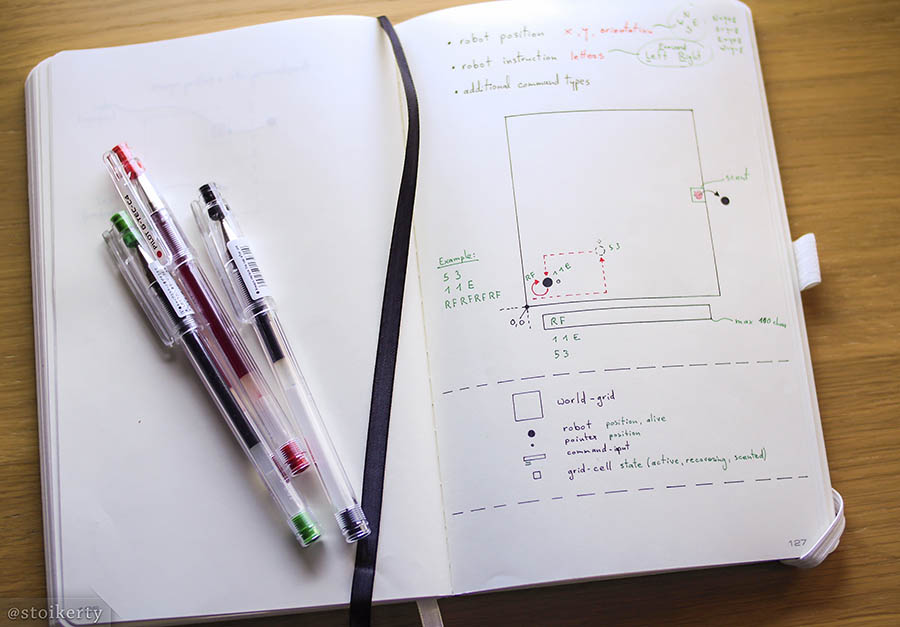 • robot position x, y, orientation
N
W E
S
• robot instruction letters
Forward
Left Right
• additional command types
scent
Example:
5 3
1 1 E
RFRFRFRF
5 3
RF
1 1 E
0,0
RF
max 100 char
1 1 E
5 3
world-grid
robot position, alive
pointer position
command-input
grid-cell state (active, recovering, scented)
127
PILOT G-TEC-C4
@stoikerty